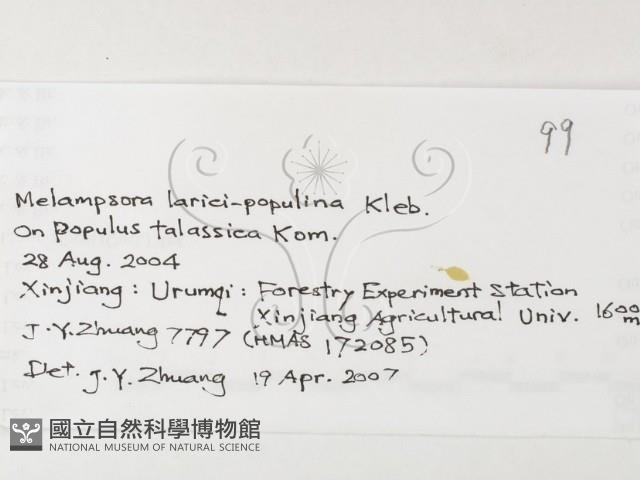 99
Melampsora larici-populina Kleb.
On Populus talassica Kom.
28 Aug. 2004
Xinjiang: Urumqi: Forestry Experiment Station
Xinjiang Agricultural Univ. 1600 m
J.Y. Zhuang 7797 (HMAS 172085)
Det. J.Y. Zhuang 19 Apr. 2007
國立自然科學博物館
NATIONAL MUSEUM OF NATURAL SCIENCE